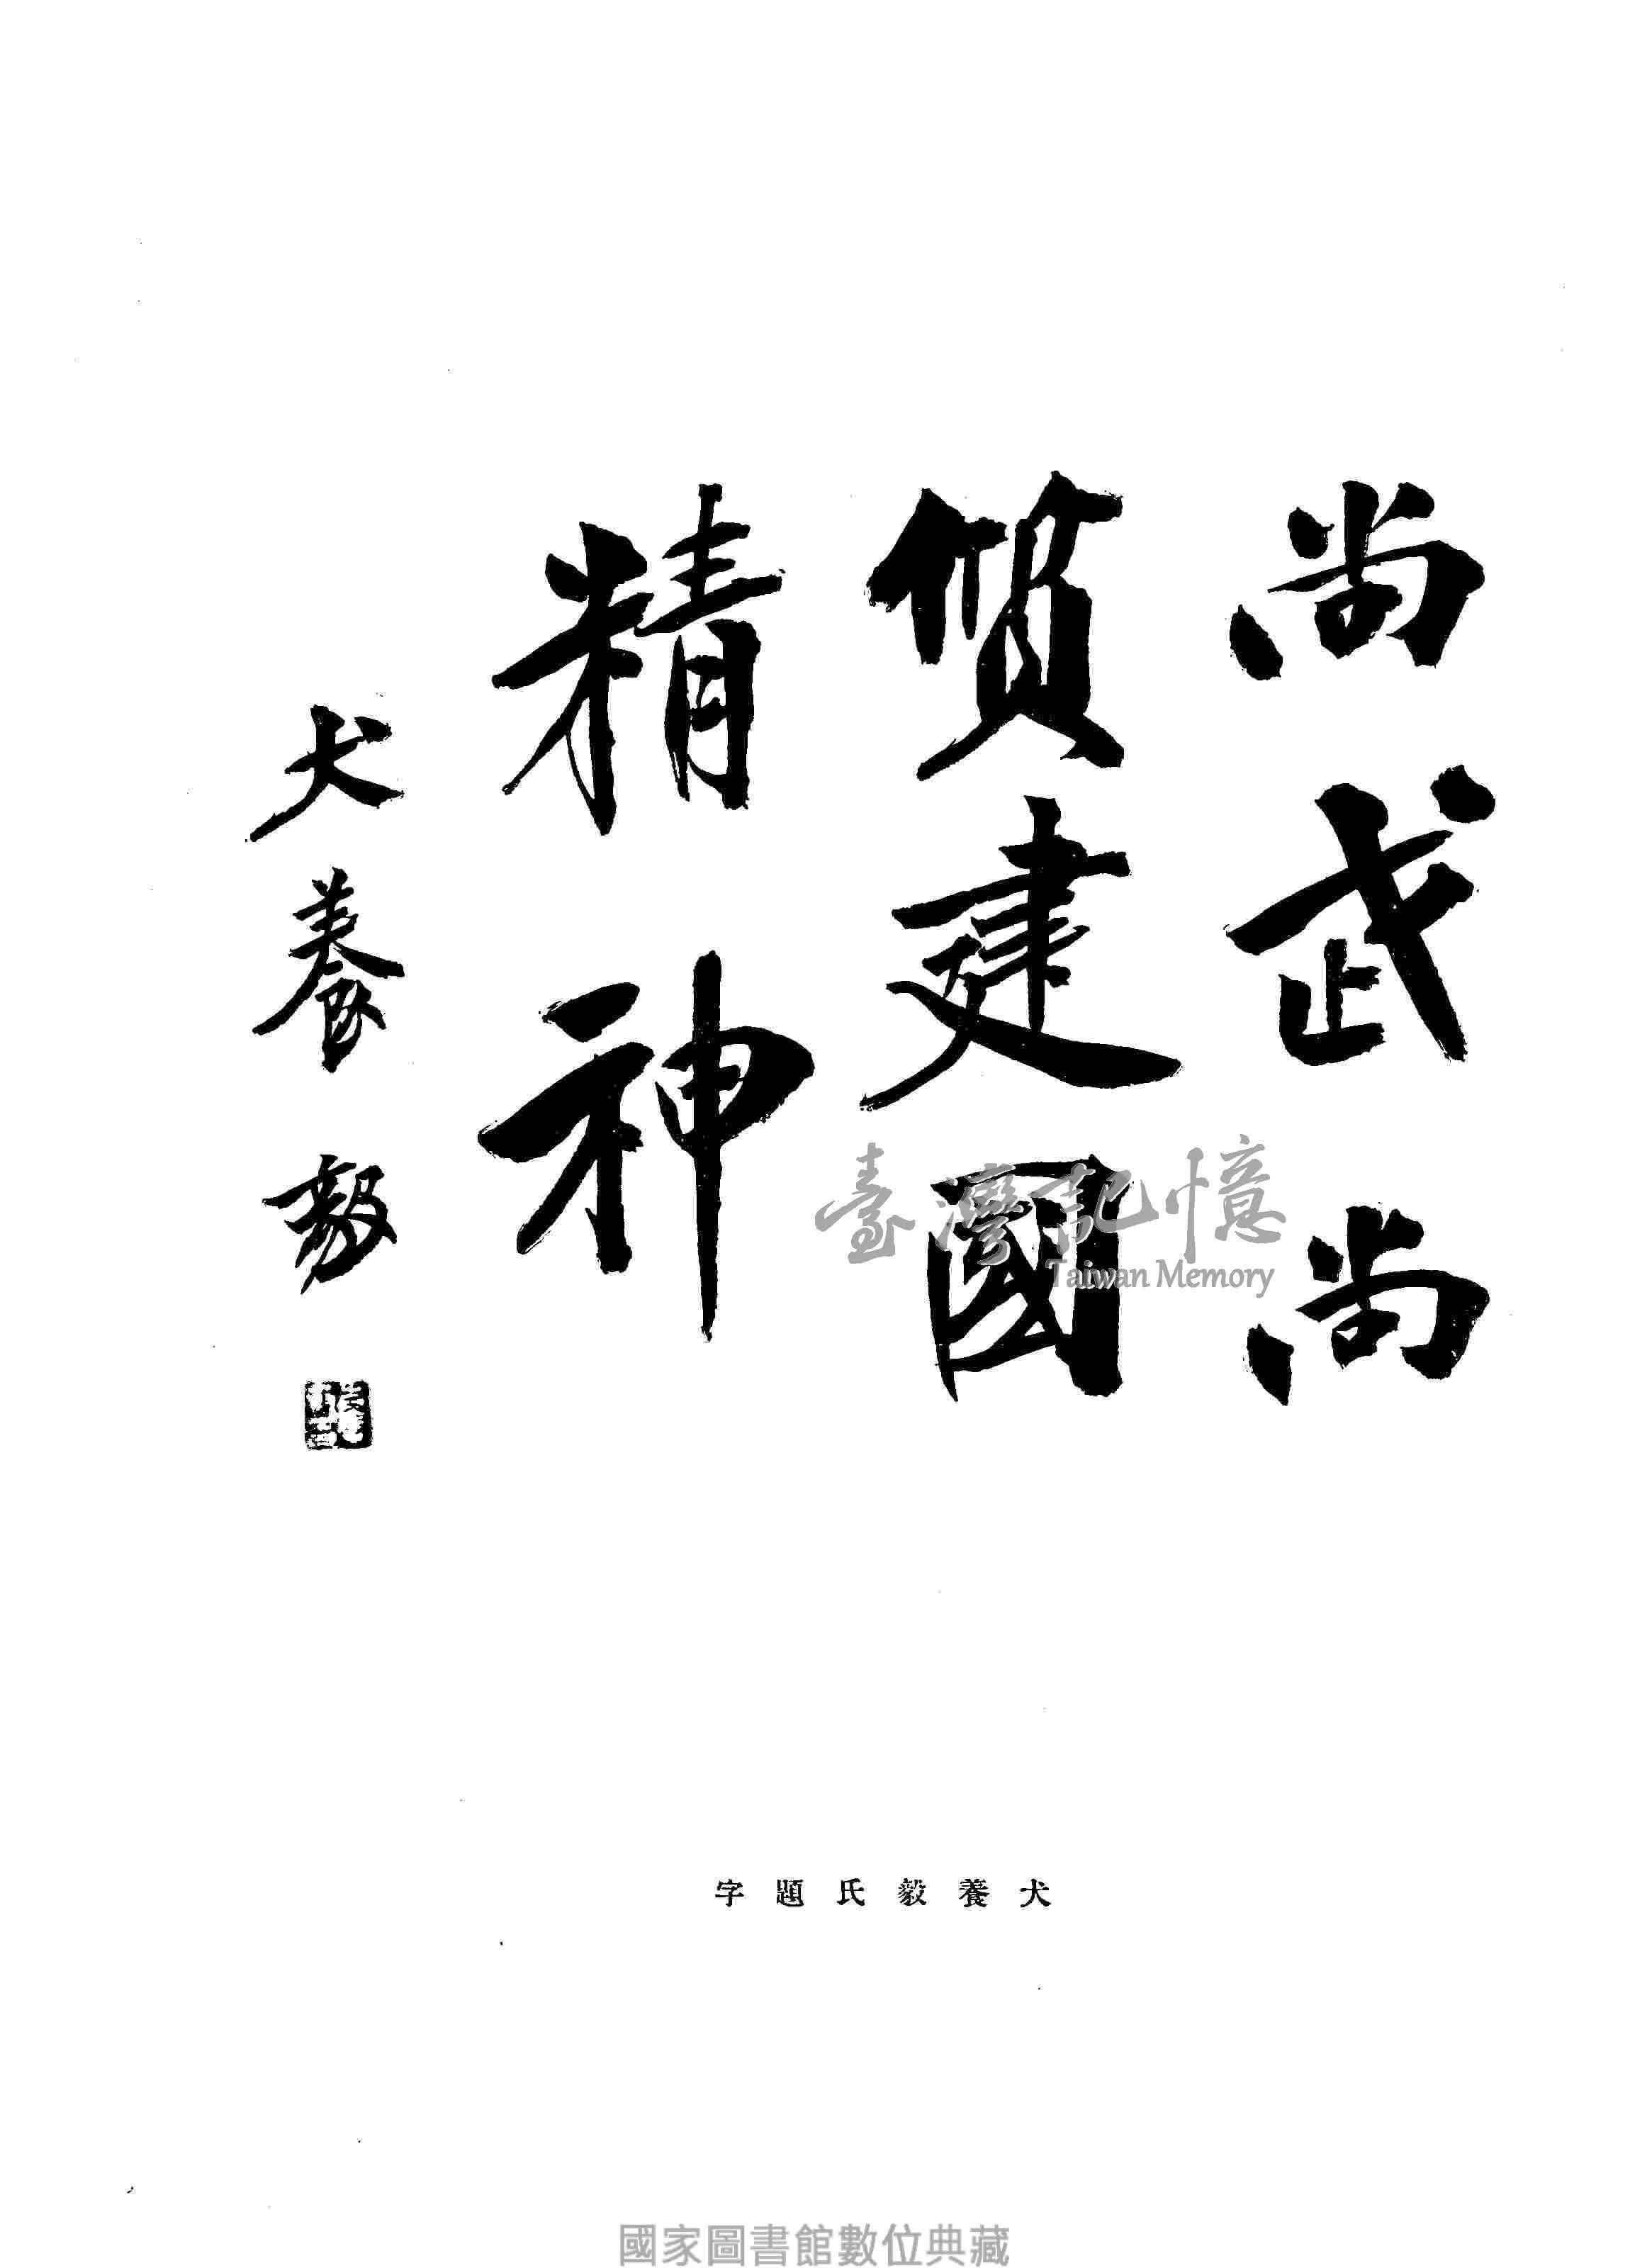 尚武尚
質建國
精神
犬養毅
犬養毅氏題字
臺灣記憶
Taiwan Memory
國家圖書館數位典藏